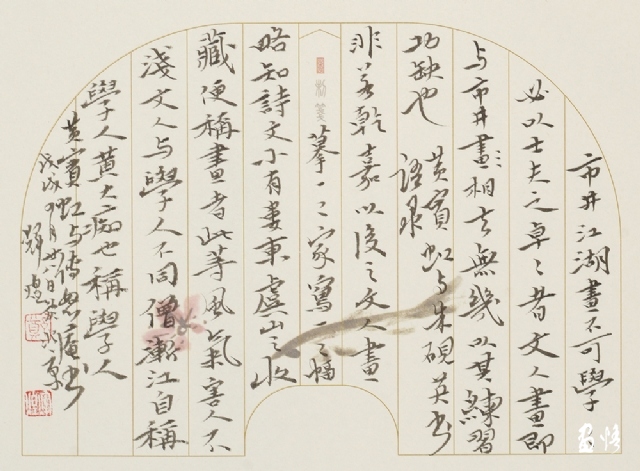 市井江湖畫不可學
必以士夫之卓々者文人畫即
与市井畫相去無幾以其練習
功缺也 黃賓虹与朱硯英書
語录
非若乾嘉以後之文人畫
摹一二家寫一二幅
略知詩文小有婁東虞山之收
藏便稱畫者此等風氣害人不
淺文人与學人不同僧漸江自稱
學人黃大癡也稱學人
黃賓虹与傅怒庵書
戊戌 月廿八日
輝煌